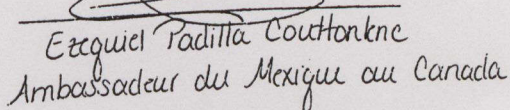 Ezequiel Padilla Couttonenc
Ambassadeur du Mexique au Canada